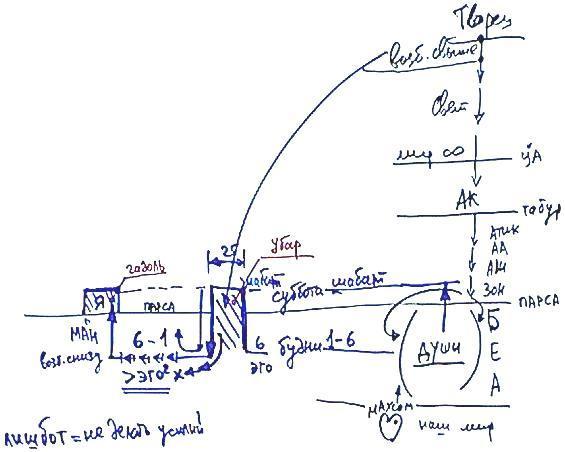 Творец
возб. свыше
Свет
мир ∞
ЦА
АК
табур
АТИК
АА
АИ
ЗОН
25
Убар
гадоль
Я
ПАРСА
шабат
суббота-шабат
ПАРСА
МАН
возб.снизу
6-1
6
ЭГО
будни 1-6
ДУШИ
Б
Е
А
>ЭГО² х
МАХСОМ
наш мир
лишбот = не делать усилий